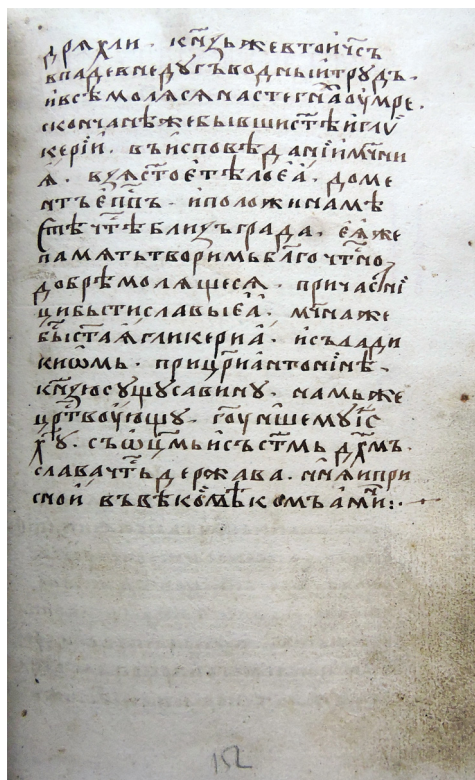 дряхли. кн҃ѕьжевтоичⷭ҇ъ
впадевнедѹгъводныитрѹдъ.
ивсѣмолясянастегнꙋоумре.
скончанѣжебывшистⷪ҇ѣиглѵ
керїи. въисповѣданїимчн҃и
я. взѧстоетѣлоеѧ. доме
нтъеп҃пъ. иположинамѣ
стѣчⷭ҇тѣблизъграда. еяже
памятьтворимьбл҃гочⷭ҇тно,
добрѣмолящеся. причаⷭ҇нї
цибытиславыеа҆. мч҃наже
бы́стаягликериа. исъдади
киѡмь. прицр҃иантонїнѣ.
кн҃ѕюсѹщѹсавинѹ. намьже
црⷭ҇твоующѹ. гⷭ҇оуншемѹіс҃
хѹ҃. съѡц҃мьисъстⷨ҇ьдх҃мъ.
славачⷭ҇тьдержава. нн҃яипри
снои въвѣкⷨ҇вѣкомъами:·
152